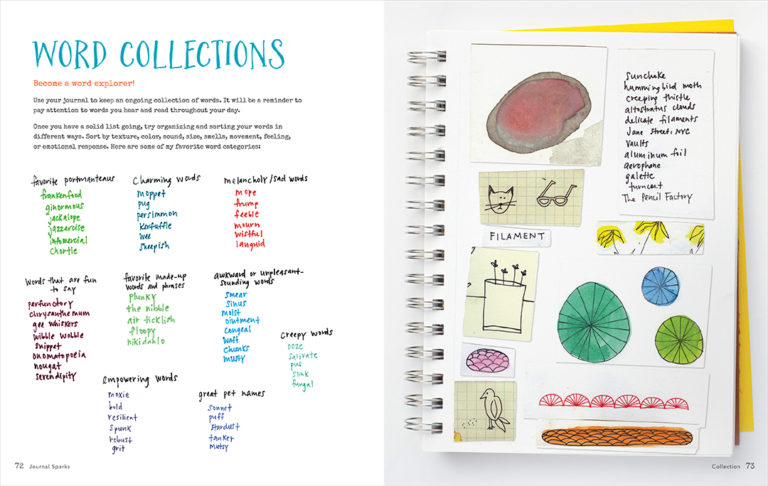 WORD COLLECTIONS
Become a word explorer!
Use your journal to keep an ongoing collection of words. It will be a reminder to
pay attention to words you hear and read throughout your day.
Once you have a solid list going, try organizing and sorting your words in
different ways. Sort by texture, color, sound, size, smells, movement, feeling,
or emotional response. Here are some of my favorite word categories:
favorite portmanteaus
frankenfood
ginormous
jackalope
jazzercise
infomercial
chortle
charming words
moppet
pug
persimmon
kerfuffle
wee
sheepish
melancholy/sad words
mope
feeble
mourn
wistful
languid
words that are fun
to say
perfunctory
chrysanthemum
gee whiskers
wibble wobble
snippet
onomatopoeia
nougat
serendipity
favorite made-up
words and phrases
plunky
the nibble
air ticklish
floopy
awkward or unpleasant-
sounding words
smear
sinus
moist
ointment
congeal
chunks
musty
creepy words
ooze
salivate
pus
slink
fungal
empowering words
moxie
bold
resilient
spunk
robust
grit
great pet names
sonnet
puff
stardust
tanker
72 Journal Sparks
sunchoke
hummingbird moth
creeping thistle
altostratus clouds
delicate filaments
Jane Street: NYC
vaults
aluminum foil
aerophone
galette
turncoat
The Pencil Factory
FILAMENT
Collection 73